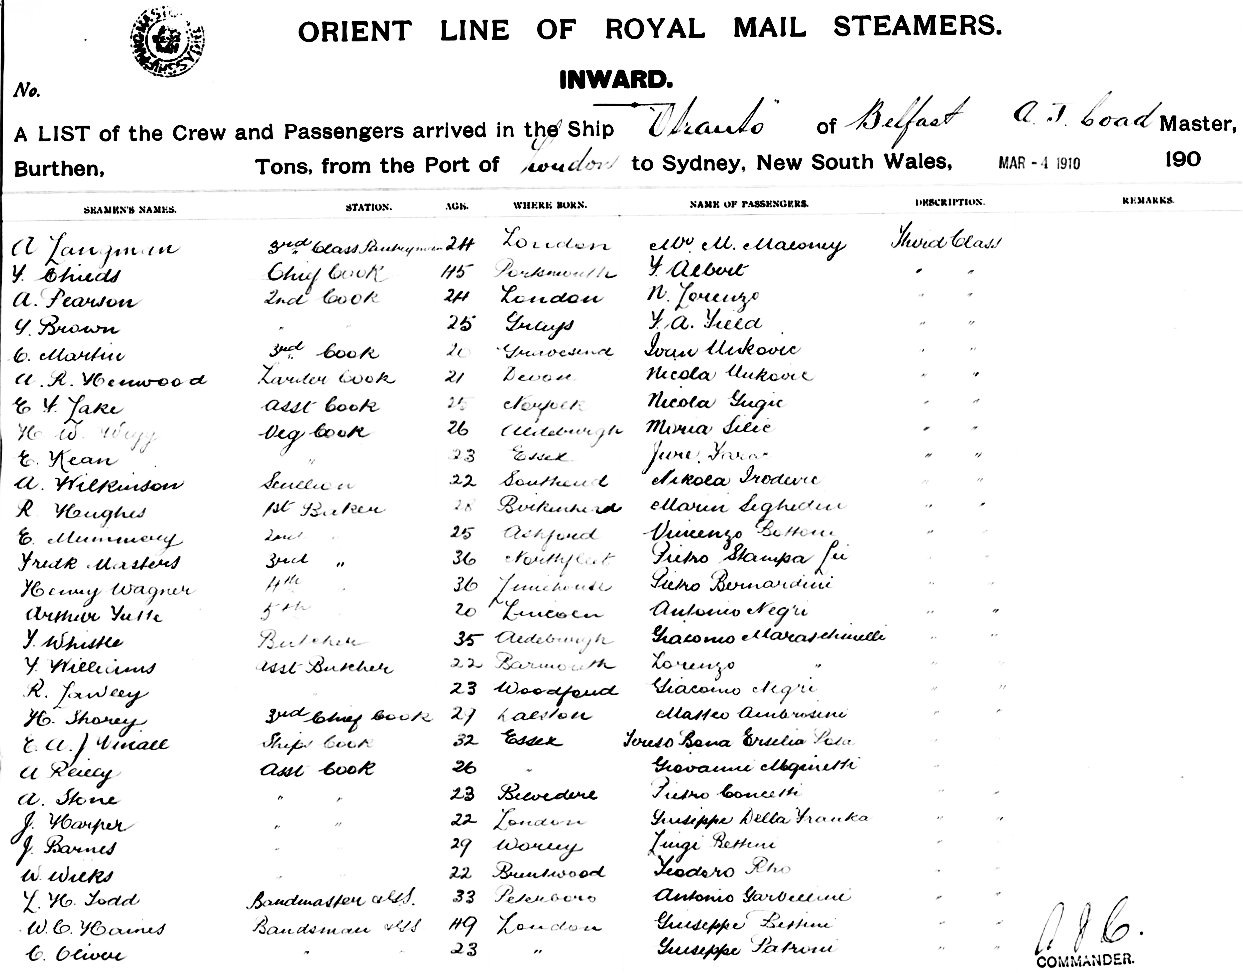 ORIENT LINE OF ROYAL MAIL STEAMERS.
INWARD.
No.
A LIST of the Crew and Passengers arrived in the Ship Otranto of Belfast A. J. Coad Master,
Burthen, Tons, from the Port of London to Sydney, New South Wales, MAR - 4 1910 190
SEAMEN'S NAMES. STATION. AGE. WHERE BORN. NAME OF PASSENGERS. DESCRIPTION. REMARKS.
A Langman 3rd Class Pantryman 24 London Mr M. Maloney Third Class
F. Chieds Chief Cook 45 Portsmouth F. Albert " "
A. Pearson 2nd Cook 24 London N. Lorenzo " "
G. Brown " " 25 Grays F. A. Field " "
C. Martin 3rd Cook 20 Gravesend Ivan Unkovic " "
A. R. Henwood Larder Cook 21 Devon Nicola Unkovic " "
E F. Lake Asst Cook 25 Norfolk Nicola Gugic " "
H. W. Veg Cook 26 Aldeburgh Silic " "
E. Kean " 23 Essex Jure " "
A. Wilkinson Scullion 22 Southend Nikola " "
R Hughes 1st Baker 28 Birkenhead Marin " "
E. Mummery 2nd " 25 Ashford Vincenzo Bettoni " "
Fredk Masters 3rd " 36 Northfleet Pietro Stampa " "
Henry Wagner 4th " 36 Limehouse Pietro Bernardini " "
Arthur 5th " 20 Lincoln Antonio Negri " "
F. Whistle Butcher 35 Aldeburgh Giacomo Maraschinelli " "
F. Williams Asst Butcher 22 Barmouth Lorenzo " " "
R. Lawley 23 Woodford Giacomo Negri " "
H. Shorey 3rd Chief Cook 27 Matteo Ambrosini " "
E. A. J Vinall Ships Cook 32 Essex Bona Ersilia " "
A Reilly Asst Cook 26 " Giovanni " "
A. Stone " " 23 Belvedere Pietro " "
J. Harper " " 22 London Giuseppe Della Franka " "
J. Barnes " " 29 Luigi Bettini " "
W. Wicks " " 22 Brentwood Teodoro Rho " "
L. H. Todd Bandmaster 33 Peterboro Antonio " "
W. C. Haines Bandsman 49 London Giuseppe Bettini " "
C. Oliver " " 23 " Giuseppe Patroni " "
A J C.
COMMANDER.